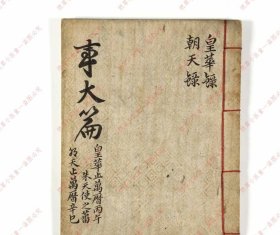 皇華錄
朝天錄
事大篇
皇華止萬曆丙午
朱天使之蕃
朝天止萬曆辛巳